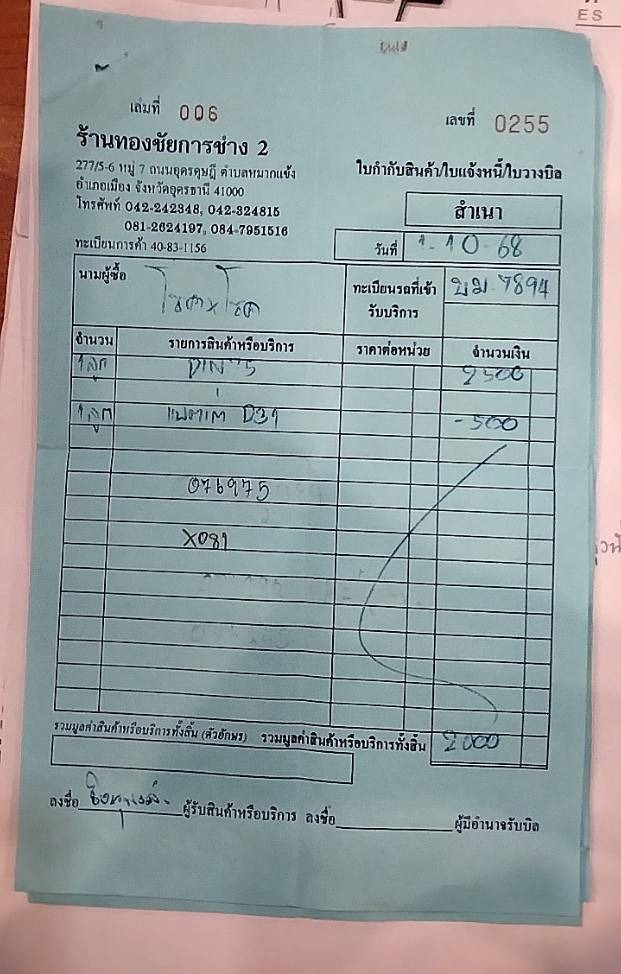 เล่มที่ 006
เลขที่ 0255
ร้านทองชัยการช่าง 2
277/5-6 หมู่ 7 ถนนอุดรดุษฎี ตำบลหมากแข้ง
อำเภอเมือง จังหวัดอุดรธานี 41000
โทรศัพท์ 042-242348, 042-324815
081-2624197, 084-7951516
ทะเบียนการค้า 40-83-1156
ใบกำกับสินค้า/ใบแจ้งหนี้/ใบวางบิล
สำเนา
วันที่ 1-10-68
นามผู้ซื้อ
ทะเบียนรถที่เข้ารับบริการ บม 7894
จำนวน รายการสินค้าหรือบริการ ราคาต่อหน่วย จำนวนเงิน
1 ลูก DIN 75 2500
1 ลูก D31 -500
076975
X081
รวมมูลค่าสินค้าหรือบริการทั้งสิ้น (ตัวอักษร) รวมมูลค่าสินค้าหรือบริการทั้งสิ้น 2000
ลงชื่อ ผู้รับสินค้าหรือบริการ ลงชื่อ ผู้มีอำนาจรับบิล
ES